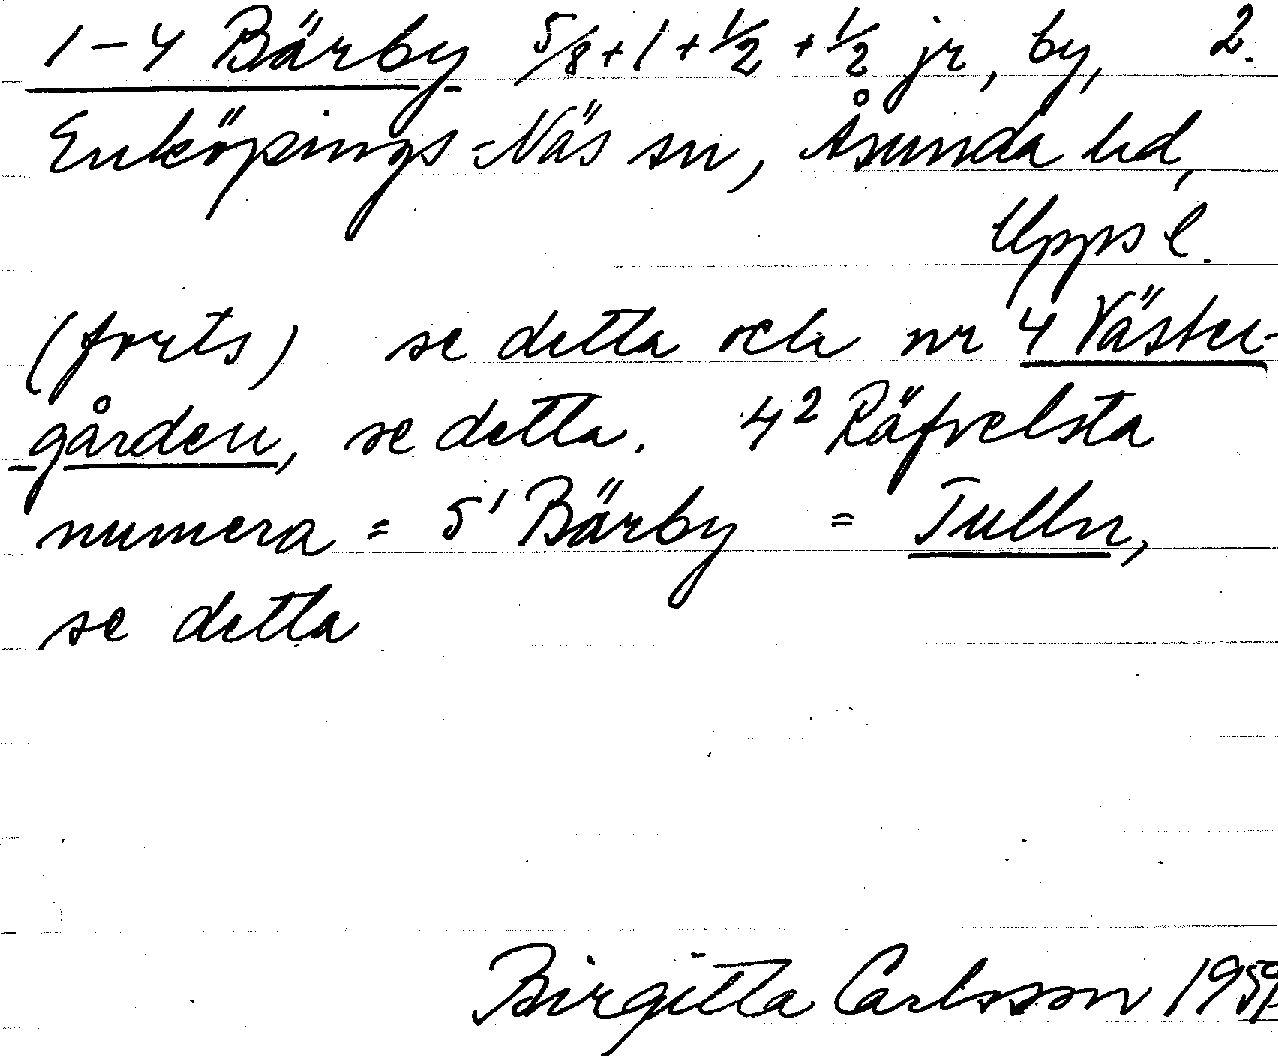 1-4 Bärby 5/8+1+1/2+1/2 jr, by, 2.
Enköpings-Näs sn, Åsunda hd,
Upps l.
(forts) se detta och nr 4 Väster-
gården, se detta. 4² Räfvelsta
numera = 5¹ Bärby = Tulln,
se detta
Birgitta Carlsson 1959